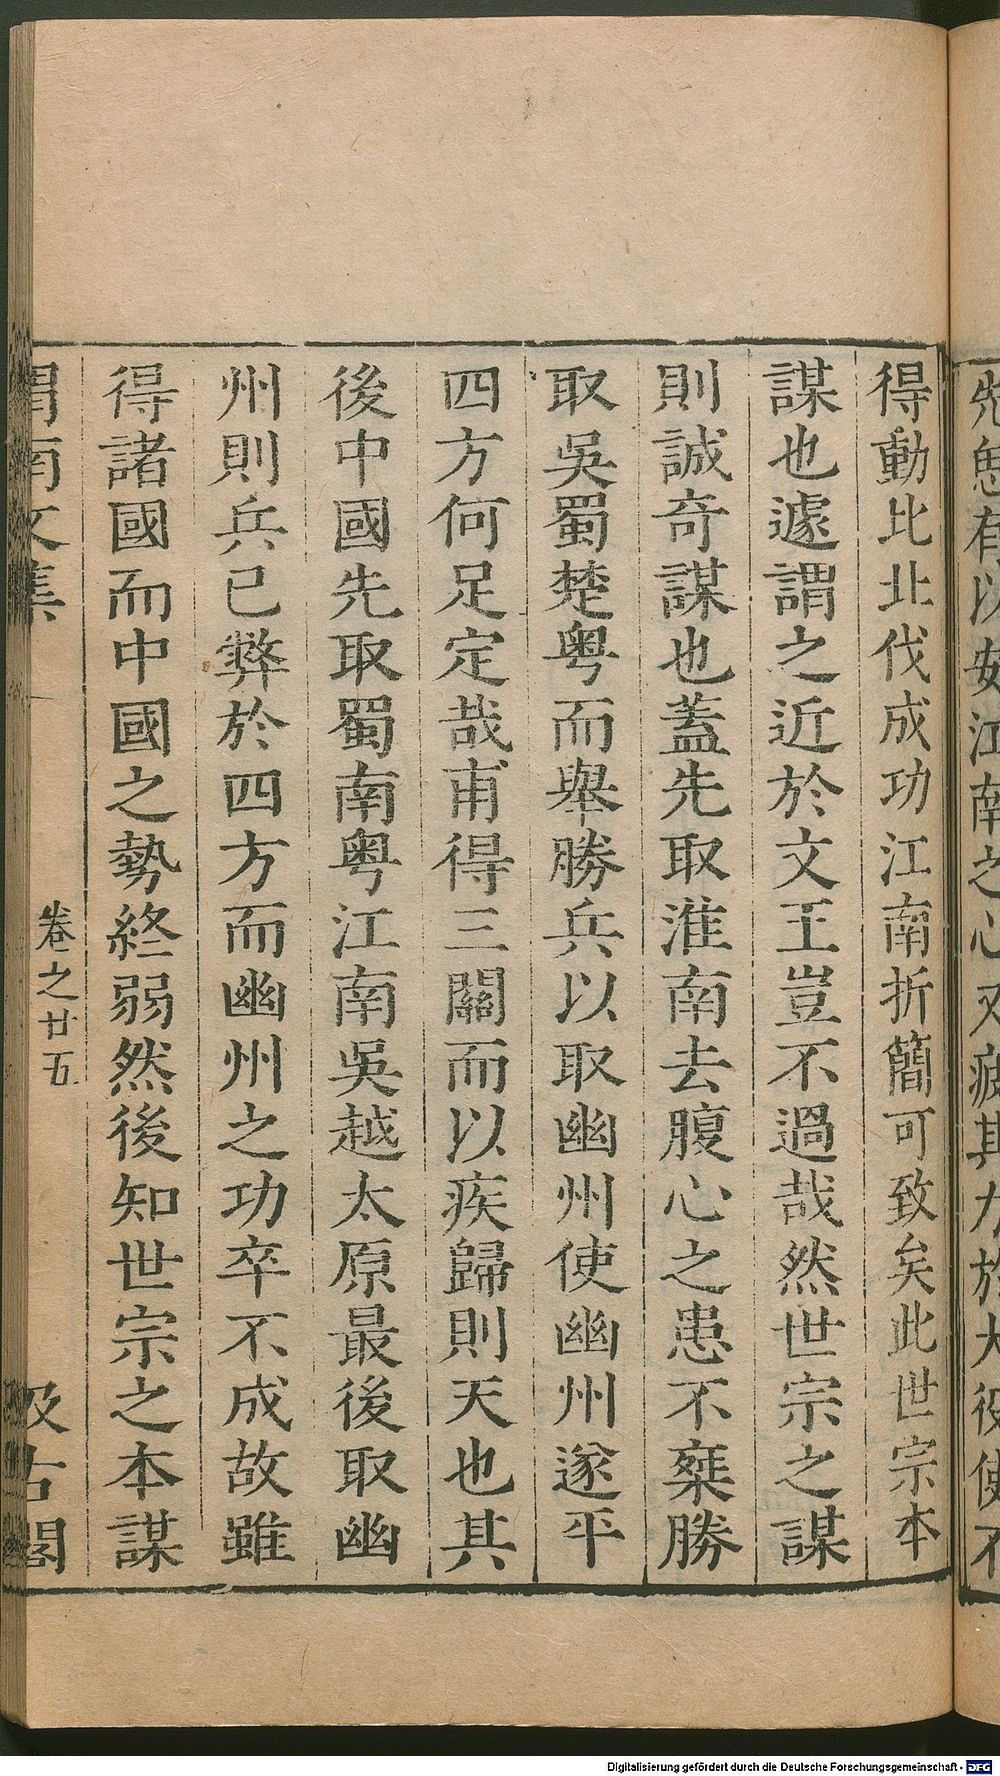 得動比北伐成功江南折簡可致矣此世宗本
謀也遽謂之近於文王豈不過哉然世宗之謀
則誠奇謀也蓋先取淮南去腹心之患不棄勝
取吳蜀楚粵而舉勝兵以取幽州使幽州遂平
四方何足定哉甫得三關而以疾歸則天也其
後中國先取蜀南粵江南吳越太原最後取幽
州則兵已弊於四方而幽州之功卒不成故雖
得諸國而中國之勢終弱然後知世宗之本謀
渭南文集 卷之廿五 汲古閣
以安江南之心又疲其力於大役使不
Digitalisierung gefördert durch die Deutsche Forschungsgemeinschaft - DFG